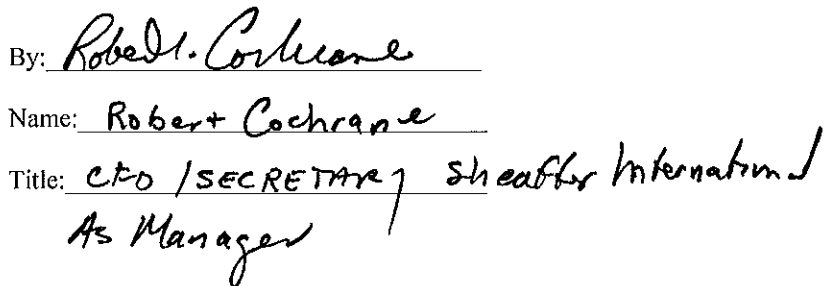 By: Robert. Cochrane
Name: Robert Cochrane
Title: CFO / SECRETARY Sheaffer International
As Manager